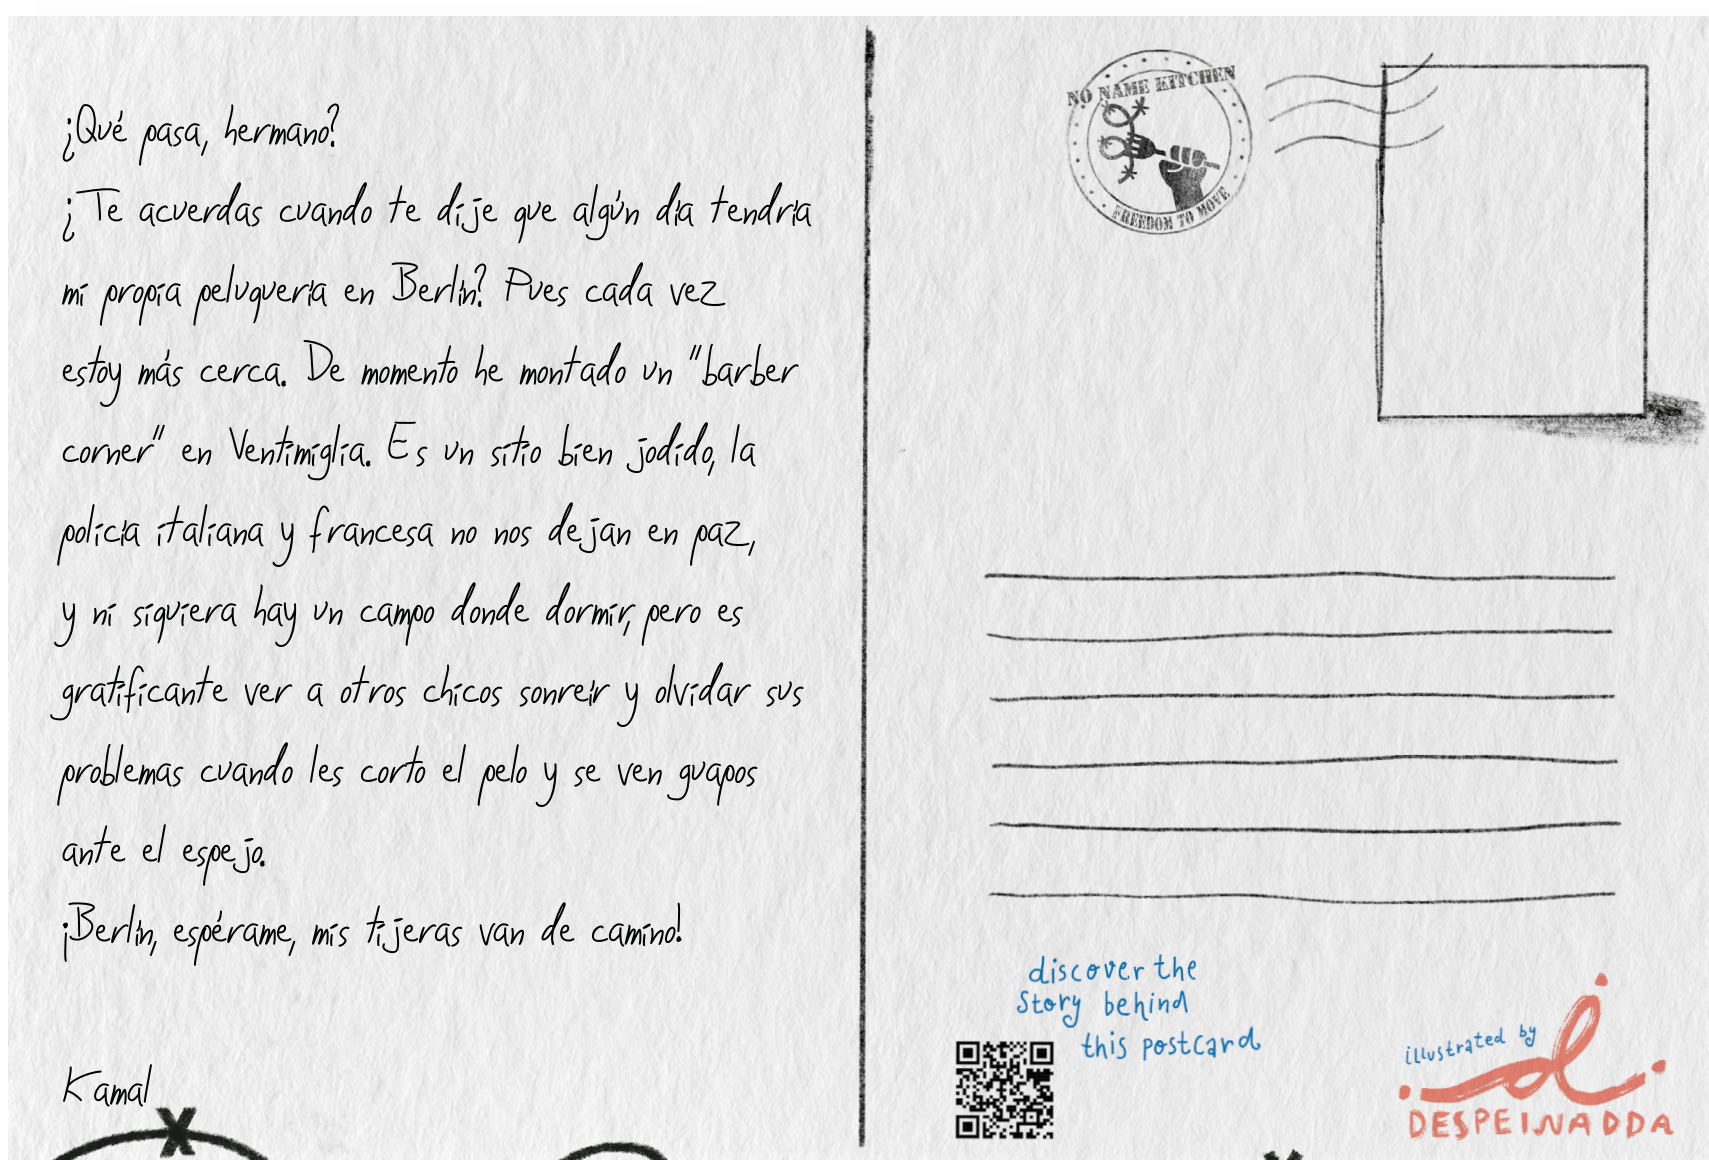 ¿Qué pasa, hermano?
¿Te acuerdas cuando te dije que algún día tendría
mi propia peluquería en Berlín? Pues cada vez
estoy más cerca. De momento he montado un "barber
corner" en Ventimiglia. Es un sitio bien jodido, la
policía italiana y francesa no nos dejan en paz,
y ni siquiera hay un campo donde dormir, pero es
gratificante ver a otros chicos sonreír y olvidar sus
problemas cuando les corto el pelo y se ven guapos
ante el espejo.
¡Berlín, espérame, mis tijeras van de camino!
Kamal
NO NAME KITCHEN
FREEDOM TO MOVE
discover the
story behind
this postcard
illustrated by
DESPEINADDA